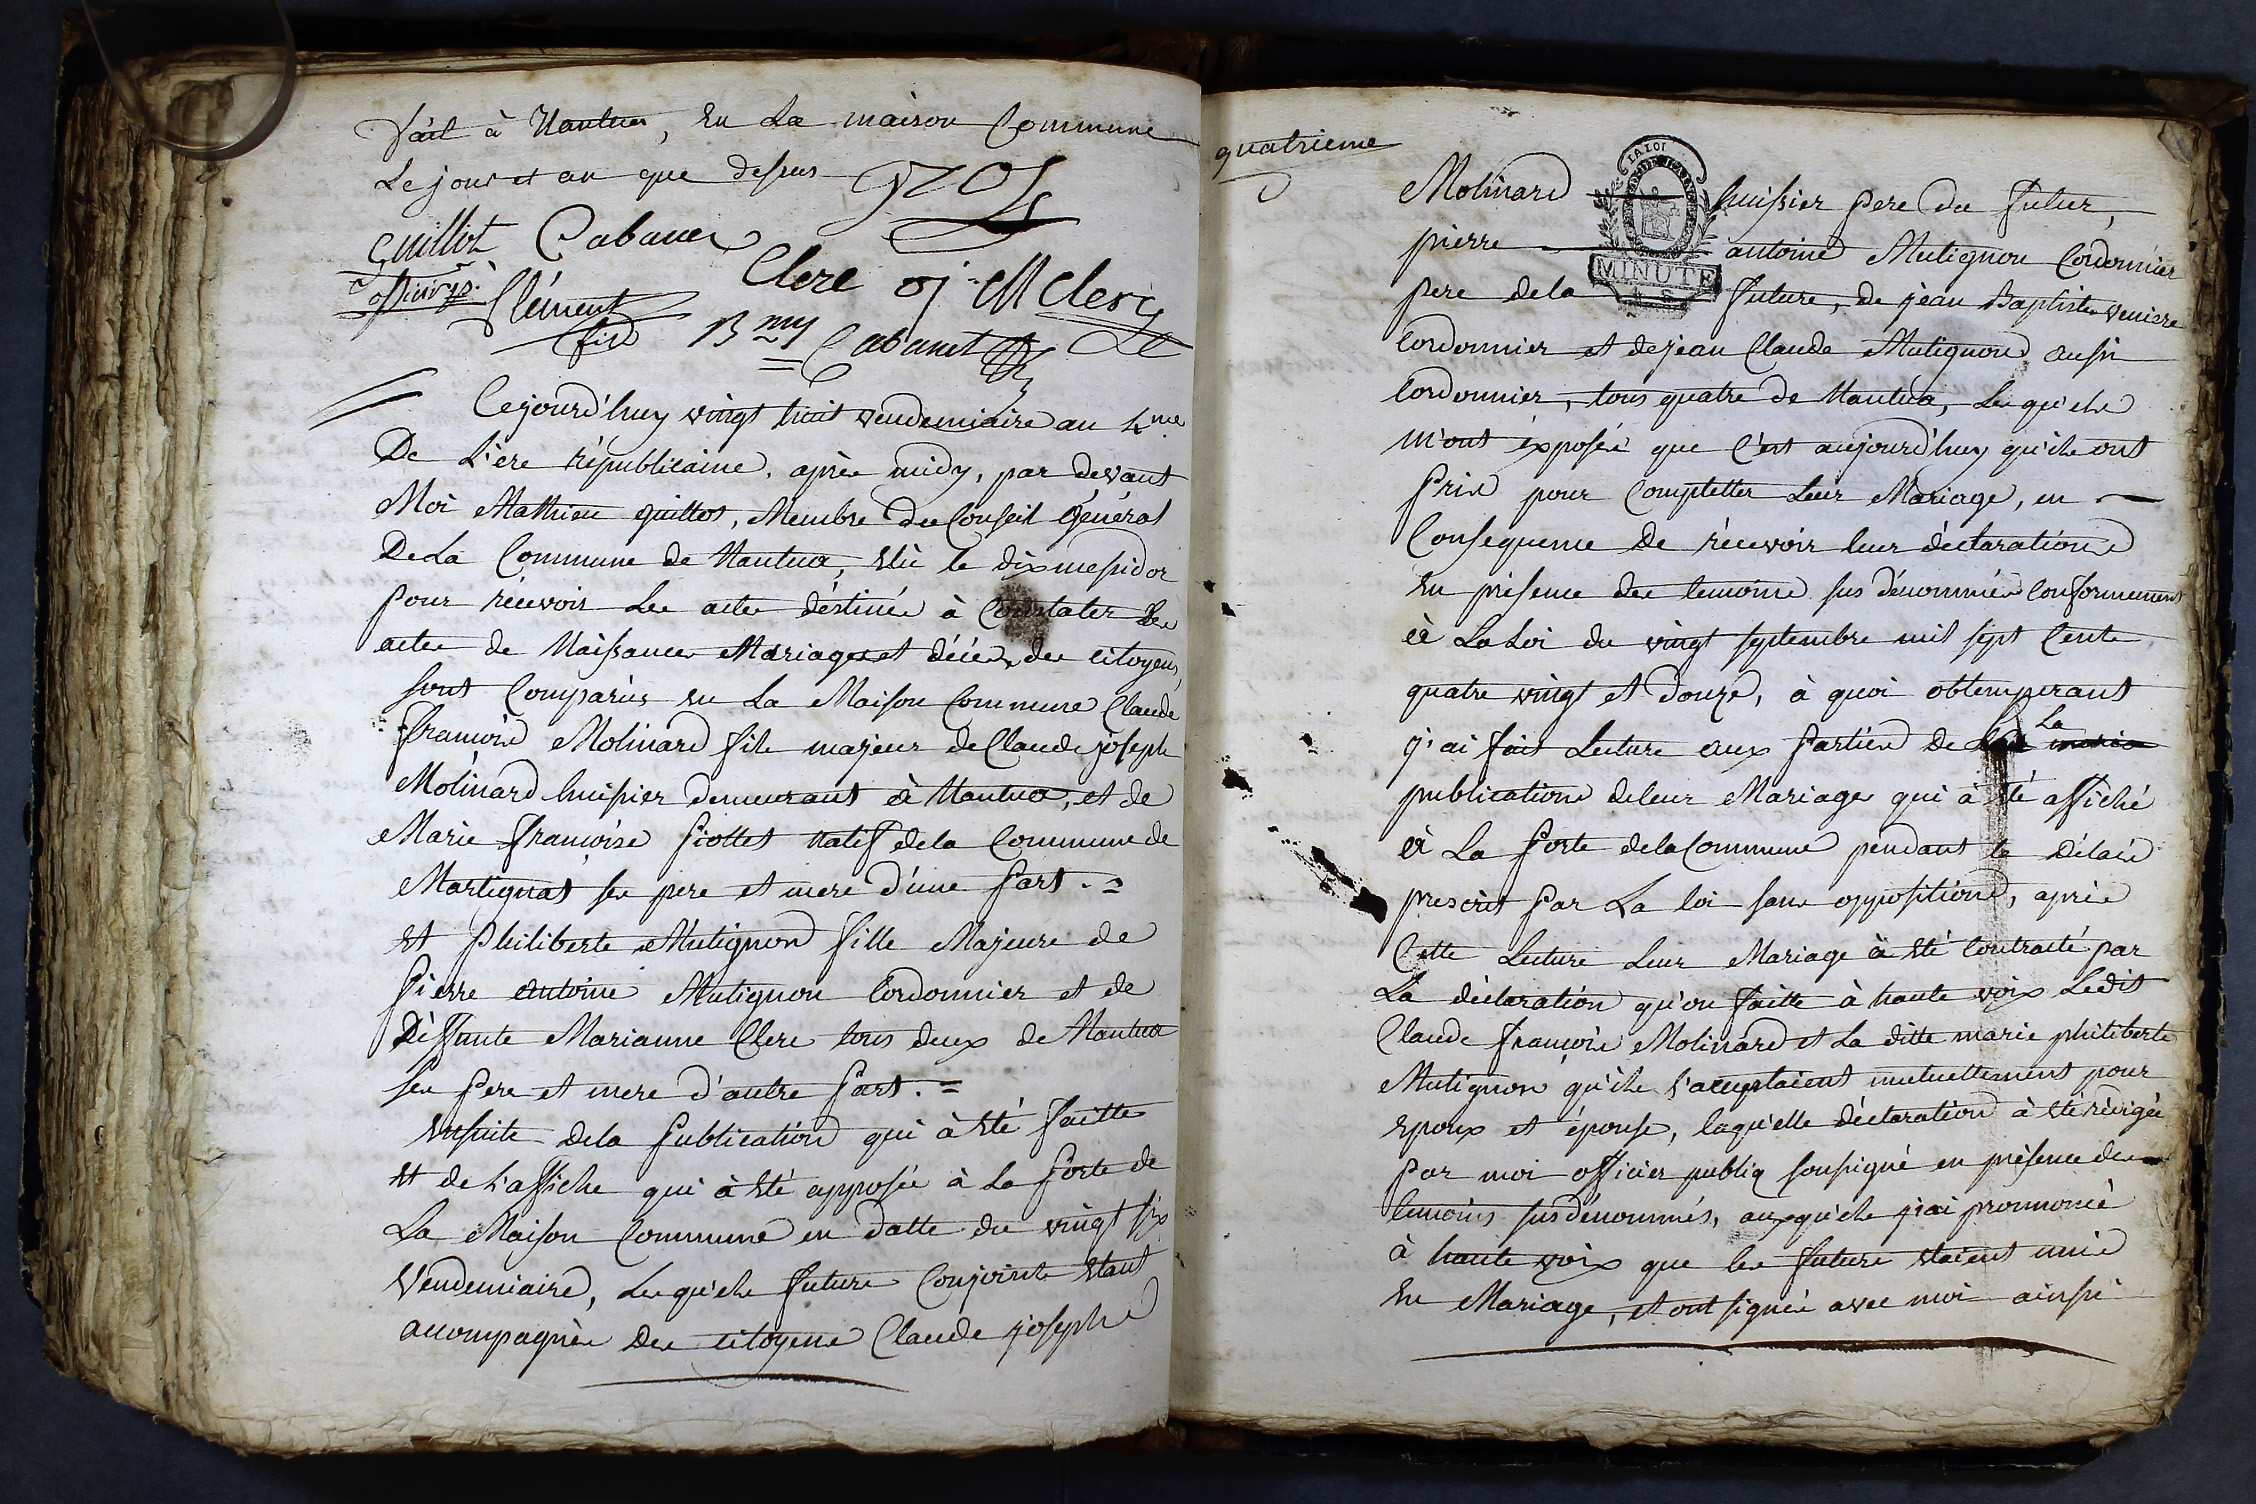 fait à Nantua, en La maison Commune
Le jour et an que dessus
Guillot Cabanes
officier p. Clerc oj M Clerc
Clément
fils B my Cabanet
Cejourd'huy vingt huit vendemiaire an 4me
De L'ere républicaine, après midy, par devant
Moi Mathieu guillot, Membre du Conseil général
De La Commune de Nantua, élû le dix messidor
pour récevoir Les actes déstinés à Constater Les
actes de Naissances Mariages et décès des citoyens,
sont Comparûs en La Maison Commune Claude
François Molinard fils majeur de Claude joseph
Molinard huissier demeurant à Nantua, et de
Marie françoise piottet natif dela Commune de
Martignat ses pere et mere d'une part. =
et Philiberte Mutignon fille Majeure de
Pierre antoine Mutignon Cordonnier et de
Déffunte Marianne Clerc tous deux de Nantua
ses pere et mere d'autre part. =
ensuite dela publication qui à été faitte
et de L'affiche qui à été apposée à La porte de
La Maison Commune en datte du vingt six
Vendemiaire, Lesqu'els future Conjoints étant
accompagnés des citoyens Claude joseph
quatrieme
LA LOI
Molinard huissier pere du futur,
pierre antoine Mutignon Cordonnier
MINUTE
pere dela future, de jean Baptiste veniere
Cordonnier et de jean Claude Mutignon aussi
Cordonnier, tous quatre de Nantua, Lesqu'els
m'ont éxposés que C'est aujourd'huy qu'ils ont
pris pour Completter Leur Mariage, en
Consequence De récevoir leur déclaration
en présence des temoins sus dénommés Conformement
à La Loi du vingt septembre mil sept Cents
quatre vingt et douze, à quoi obtemperant
j'ai fait Lecture aux parties De La
publication deleur Mariage qui à été affiché
à La porte dela Commune pendant le délais
prescrit par La loi sans opposition, après
Cette Lecture Leur Mariage à été Contracté par
La déclaration qu'on faitte à haute voix Ledit
Claude françois Molinard et La ditte marie philiberte
Mutignon qu'ils s'acceptaient mutuellement pour
epoux et épouse, laqu'elle déclaration à été rédigée
par moi officier publiq soussigné en présence des
temoins susdénommés, auxqu'els j'ai prononcé
à haute voix que les future étaient unis
en Mariage, et ont signés avec moi ainsi